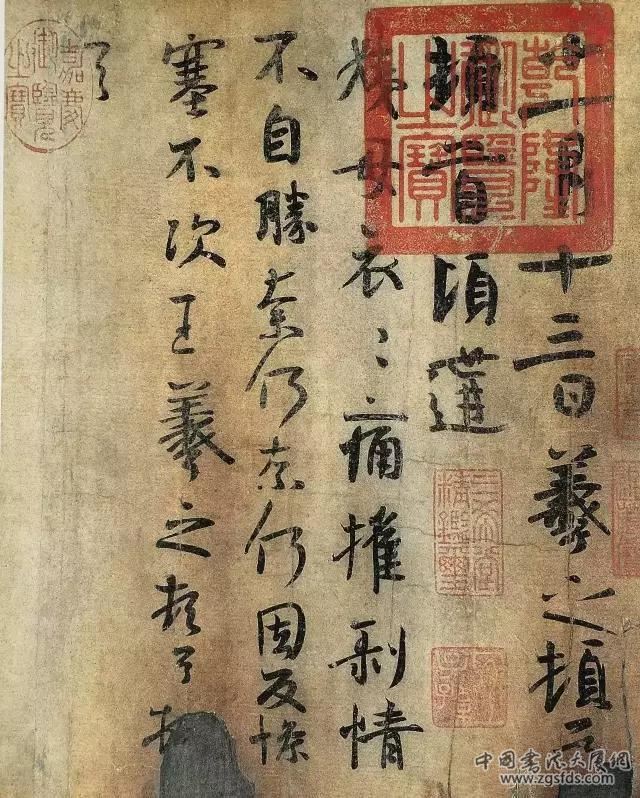 十一月十三日羲之頓首
頓首頃遘
姨母哀〻痛摧剝情
不自勝奈何奈何因反慘
塞不次王羲之頓首頓
首
乾隆御覽之寶
嘉慶御覽之寶
三希堂精鑑璽
中國書法大厦网
www.zgsfds.com